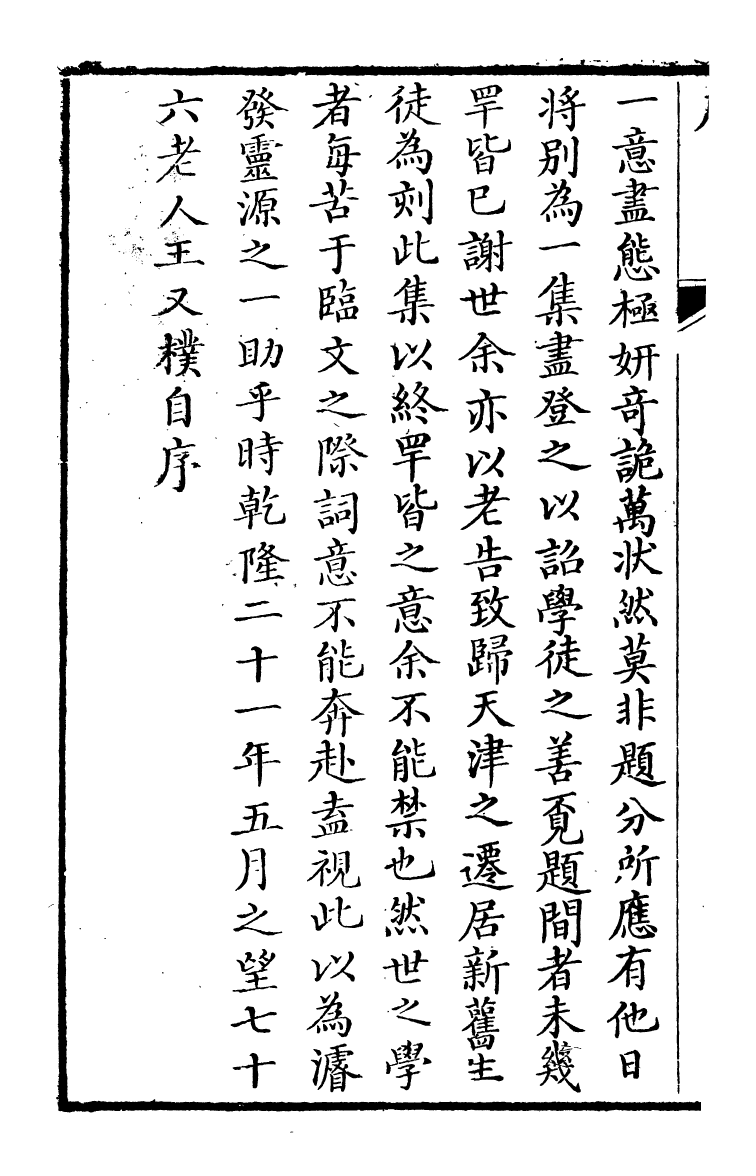 一意盡態極妍奇詭萬状然莫非題分所應有他日
将别為一集盡登之以詔學徒之善覔題間者未幾
罕皆已謝世余亦以老告致歸天津之遷居新舊生
徒為刻此集以終罕皆之意余不能禁也然世之學
者每苦于臨文之際詞意不能奔赴盍視此以為濬
發靈源之一助乎時乾隆二十一年五月之望七十
六老人王又樸自序